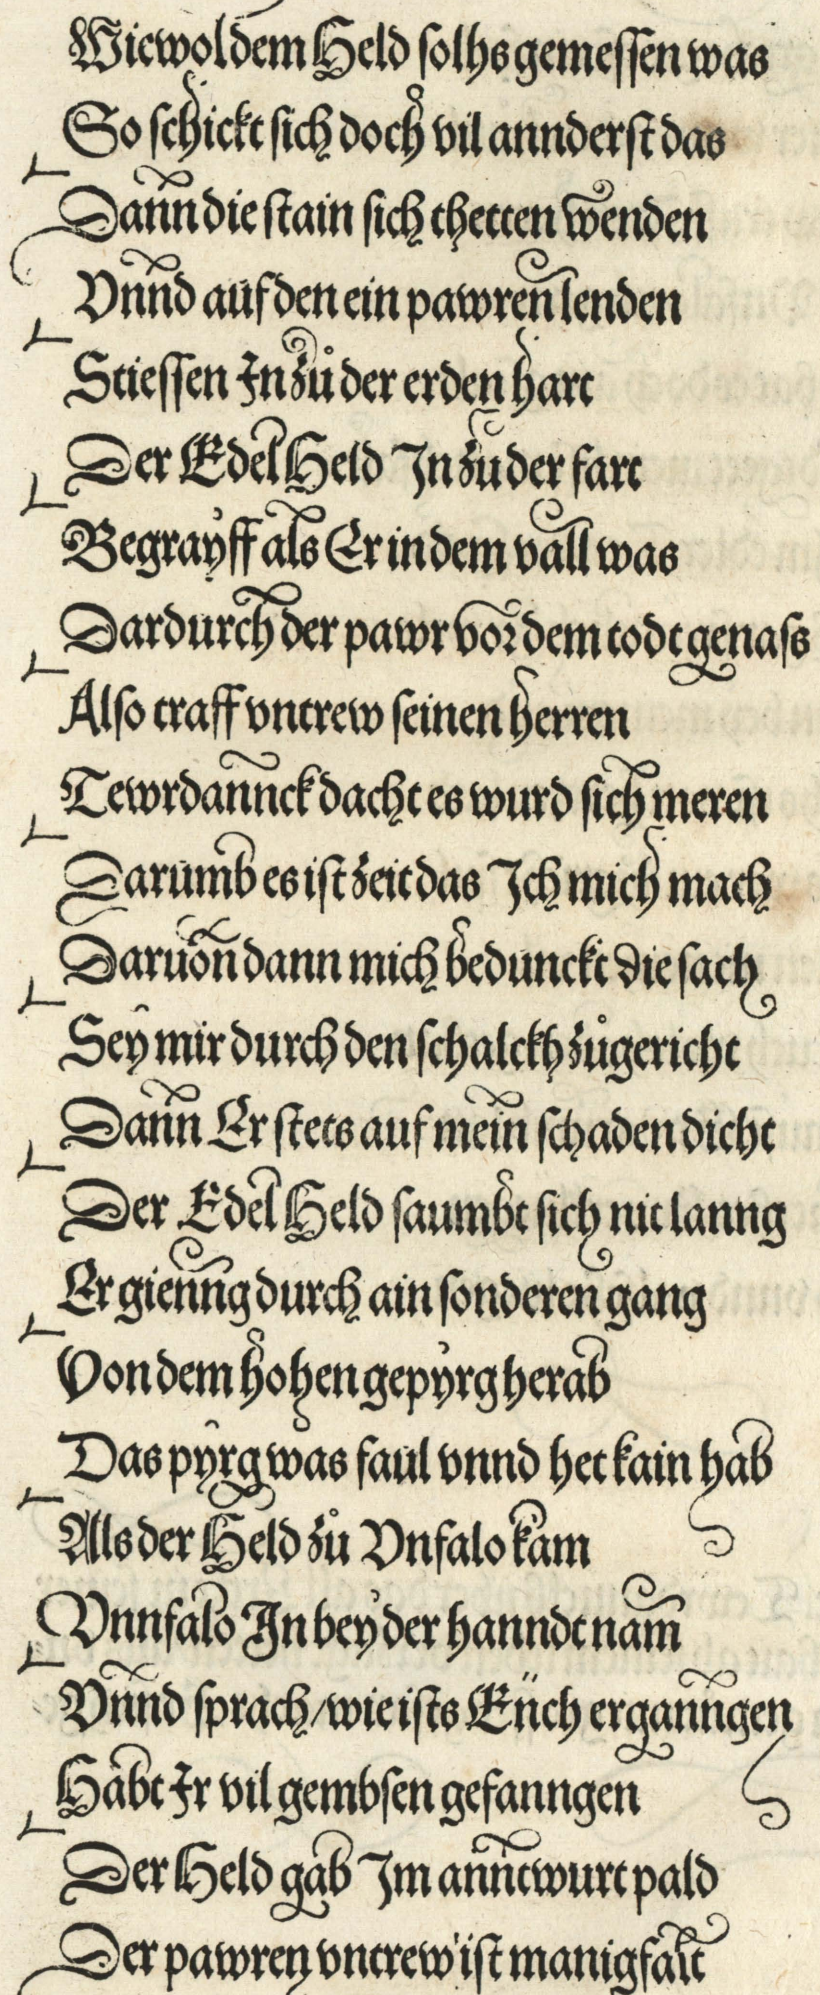 Wiewol dem Held solhs gemessen was
So schickt sich doch vil annderst das
Dann die stain sich thetten wenden
Vnnd auf den ein pawren lenden
Stiessen In zů der erden hart
Der Edel Held In zu der fart
Begrayff als Er in dem vall was
Dardurch der pawr vor dem todt genass
Also traff vntrew seinen herren
Tewrdannck dacht es wurd sich meren
Darumb es ist zeit das Ich mich mach
Daruon dann mich bedunckt die sach
Sey mir durch den schalckh zůgericht
Dann Er stets auf mein schaden dicht
Der Edel Held saumbt sich nit lanng
Er gienng durch ain sonderen gang
Von dem hohen gepyrg herab
Das pyrg was faul vnnd het kain hab
Als der Held zů Vnfalo kam
Vnnfalo In bey der hanndt nam
Vnnd sprach/wie ists Eüch erganngen
Habt Ir vil gembsen gefanngen
Der Held gab Im anntwurt pald
Der pawren vntrew ist manigfalt